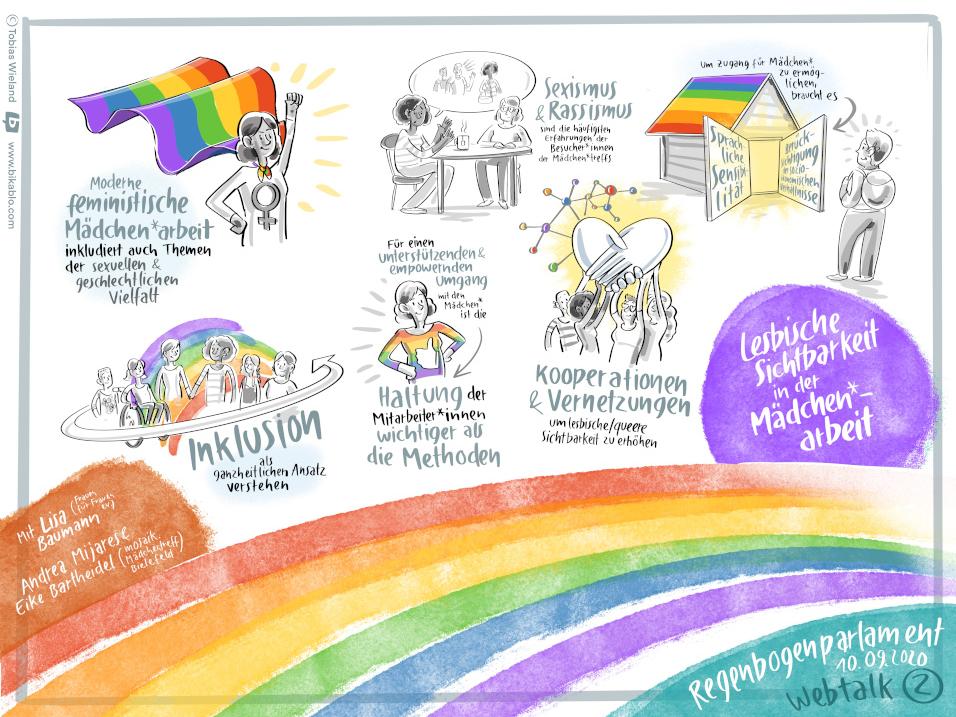 © Tobias Wieland www.bikablo.com
Moderne
feministische
Mädchen*arbeit
inkludiert auch Themen
der sexuellen &
geschlechtlichen
Vielfalt
Sexismus
& Rassismus
sind die häufigsten
Erfahrungen der
Besucher*innen
der Mädchen*treffs.
Um Zugang für Mädchen*
zu ermög-
lichen,
braucht es
Sprach-
liche
Sensibi-
lität
Berück-
sichtigung
von sozio-
ökonomischen
Verhältnisse
Für einen
unterstützenden &
empowernden
Umgang
mit den
Mädchen*
ist die
Haltung der
Mitarbeiter*innen
wichtiger als
die Methoden
Kooperationen
& Vernetzungen
um lesbische/queere
Sichtbarkeit zu erhöhen
Lesbische
Sichtbarkeit
in der
Mädchen*-
arbeit
Inklusion
als
ganzheitlichen Ansatz
verstehen
Mit Lisa (Frauen
für Frauen
Baumann eV)
Andrea Mijarese
Eike Bartheidel (mosaik
Mädchentreff
Bielefeld)
Regenbogenparlament
10.09.2020
Webtalk 2